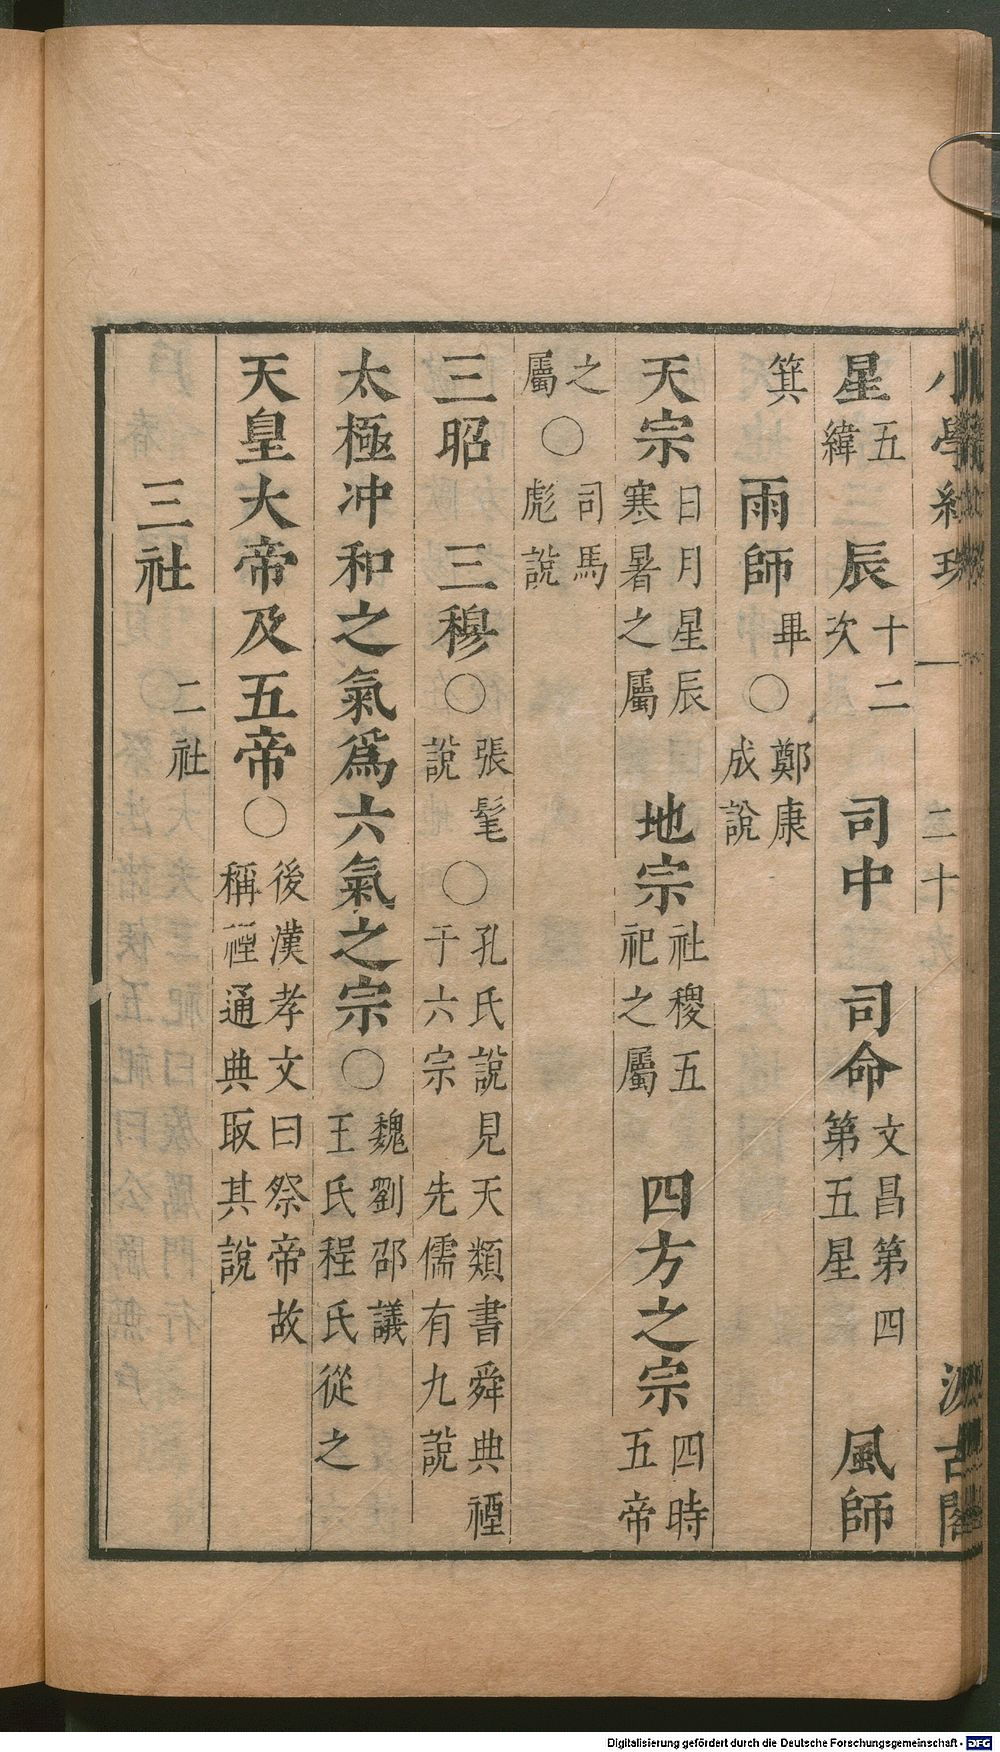 小學紺珠 一 二十 汲古閣
星五緯 辰十二次 司中 司命文昌第四第五星 風師
箕 雨師畢○鄭康成說
天宗日月星辰寒暑之屬 地宗社稷五祀之屬 四方之宗四時五帝
之屬○司馬彪說
三昭 三穆○張髦說○孔氏說見天類書舜典禋于六宗 先儒有九說
太極冲和之氣爲六氣之宗○魏劉邵議王氏程氏從之
天皇大帝及五帝○後漢孝文曰祭帝故稱禋通典取其說
三社 二社
Digitalisierung gefördert durch die Deutsche Forschungsgemeinschaft - DFG